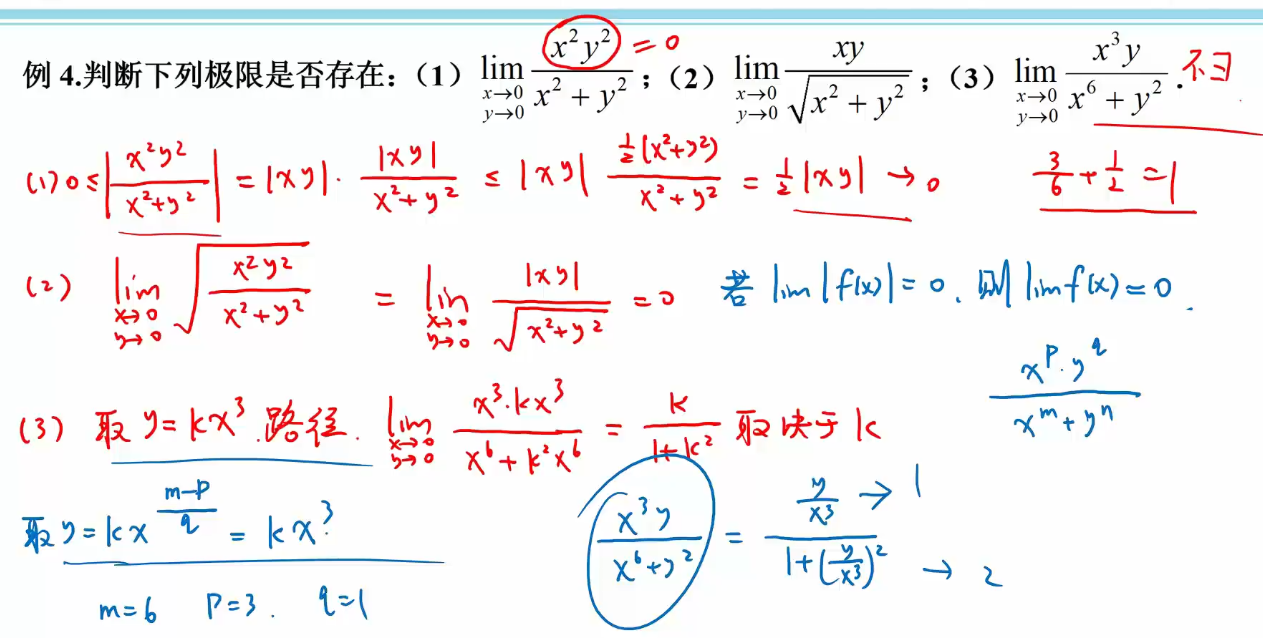 例 4.判断下列极限是否存在：(1) lim_{x→0, y→0} x²y²/(x²+y²) = 0；(2) lim_{x→0, y→0} xy/√(x²+y²)；(3) lim_{x→0, y→0} x³y/(x⁶+y²). 不∃
(1) 0 ≤ |x²y²/(x²+y²)| = |xy|·|xy|/(x²+y²) ≤ |xy| ½(x²+y²)/(x²+y²) = ½|xy| → 0
3/6 + 1/2 = 1
(2) lim_{x→0, y→0} √(x²y²/(x²+y²)) = lim_{x→0, y→0} |xy|/√(x²+y²) = 0
若 lim|f(x)| = 0. 则 lim f(x) = 0.
x^p·y^q/(x^m+y^n)
(3) 取 y=kx³ 路径. lim_{x→0, y→0} x³·kx³/(x⁶+k²x⁶) = k/(1+k²) 取决于 k
取 y=kx^((m-p)/q) = kx³
x³y/(x⁶+y²) = (y/x³)/(1+(y/x³)²) → 1 → 2
m=6 p=3. q=1